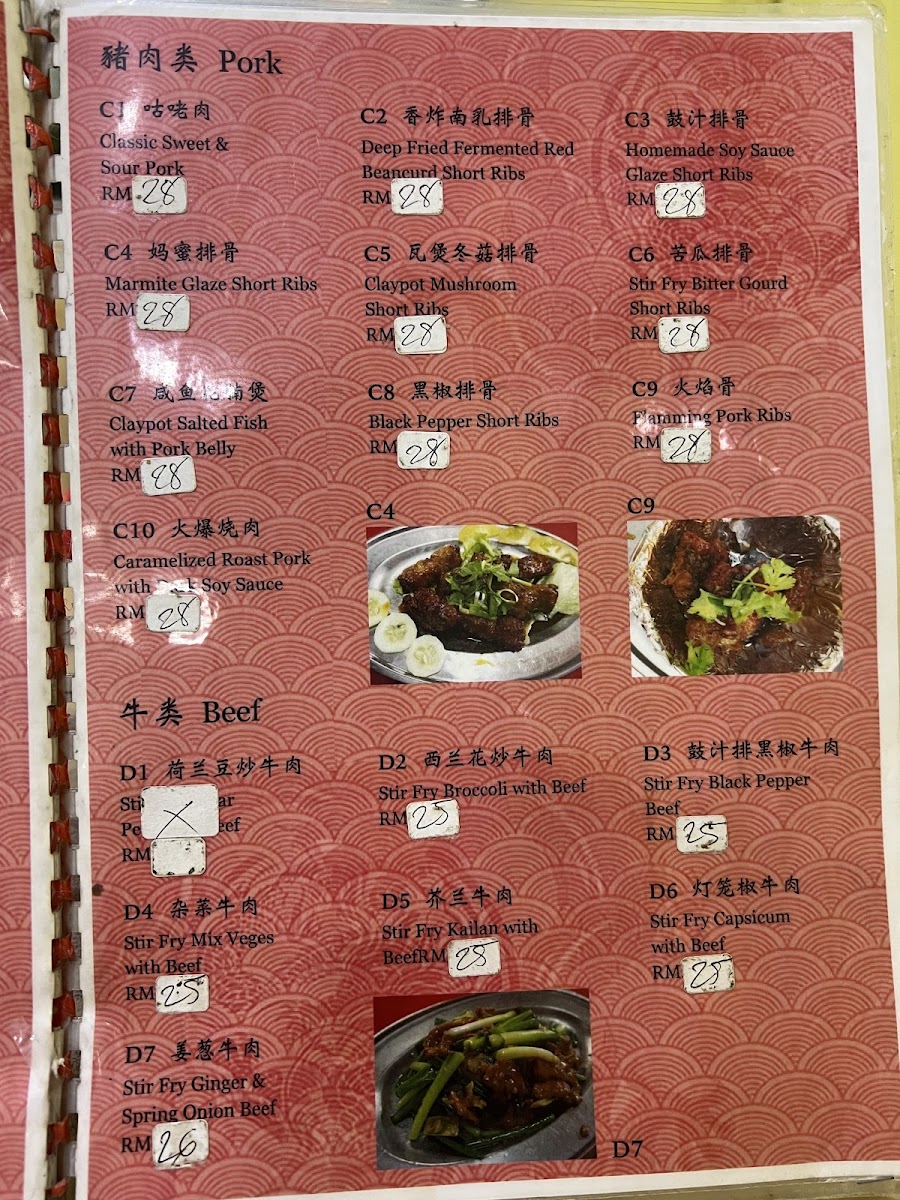 豬肉类 Pork
C1 咕咾肉
Classic Sweet &
Sour Pork
RM 28
C2 香炸南乳排骨
Deep Fried Fermented Red
Beancurd Short Ribs
RM 28
C3 鼓汁排骨
Homemade Soy Sauce
Glaze Short Ribs
RM 28
C4 妈蜜排骨
Marmite Glaze Short Ribs
RM 28
C5 瓦煲冬菇排骨
Claypot Mushroom
Short Ribs
RM 28
C6 苦瓜排骨
Stir Fry Bitter Gourd
Short Ribs
RM 28
C7 咸鱼花腩煲
Claypot Salted Fish
with Pork Belly
RM 28
C8 黑椒排骨
Black Pepper Short Ribs
RM 28
C9 火焰骨
Flamming Pork Ribs
RM 28
C10 火爆烧肉
Caramelized Roast Pork
with Dark Soy Sauce
RM 28
C4
C9
牛类 Beef
D1 荷兰豆炒牛肉
X
RM
D2 西兰花炒牛肉
Stir Fry Broccoli with Beef
RM 25
D3 鼓汁排黑椒牛肉
Stir Fry Black Pepper
Beef
RM 25
D4 杂菜牛肉
Stir Fry Mix Veges
with Beef
RM 25
D5 芥兰牛肉
Stir Fry Kailan with
BeefRM 25
D6 灯笼椒牛肉
Stir Fry Capsicum
with Beef
RM 25
D7 姜葱牛肉
Stir Fry Ginger &
Spring Onion Beef
RM 26
D7